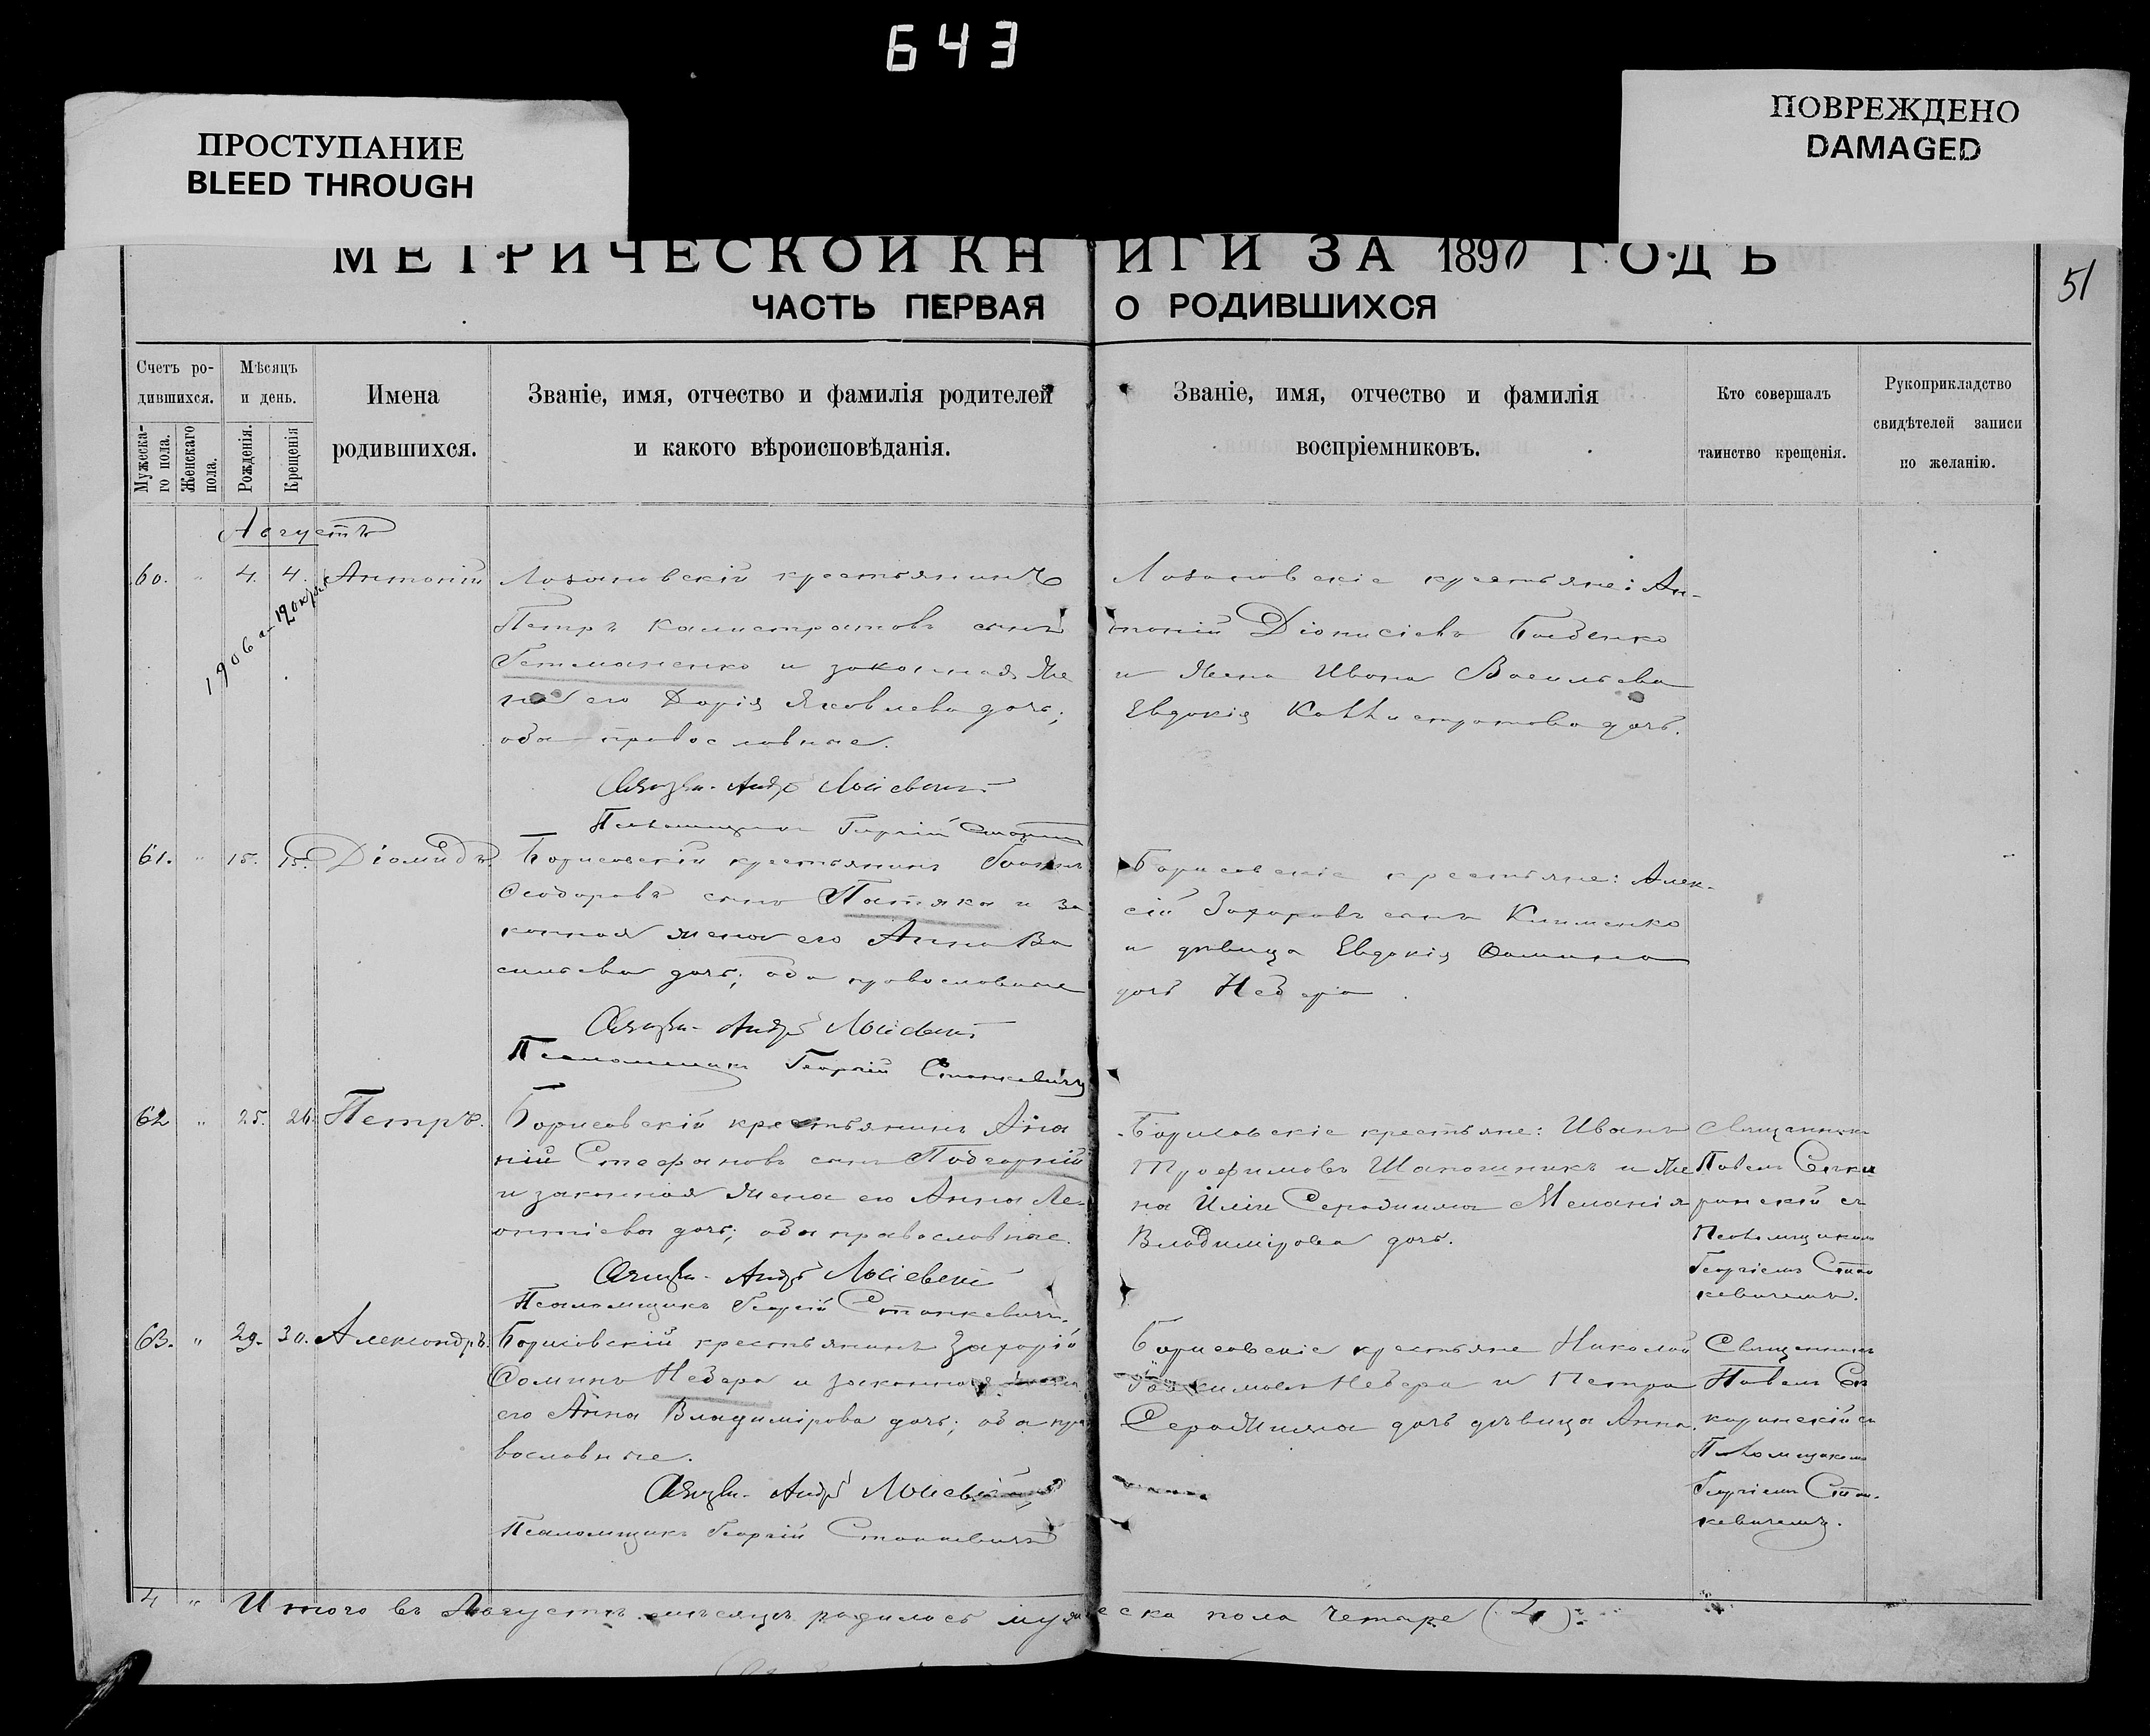 643
ПРОСТУПАНИЕ
BLEED THROUGH
ПОВРЕЖДЕНО
DAMAGED
МЕТРИЧЕСКОЙ КНИГИ ЗА 1890 ГОДЪ
51
ЧАСТЬ ПЕРВАЯ О РОДИВШИХСЯ
Счетъ ро-
дившихся.
Мужеска-
го пола.
Женскаго
пола.
Мѣсяцъ
и день.
Рожденія.
Крещенія
Имена
родившихся.
Званіе, имя, отчество и фамилія родителей
и какого вѣроисповѣданія.
Званіе, имя, отчество и фамилія
воспріемниковъ.
Кто совершалъ
таинство крещенія.
Рукоприкладство
свидѣтелей записи
по желанію.
Августъ
60. " 4. 4. Антоній
1906
Лозановскій крестьянинъ
Петръ Калистратовъ сынъ
Гетманенко и законная же
на его Дарія Яковлева дочь;
оба православные.
Андр Лосіевскій
Псаломщикъ Георгій
Лозановскіе крестьяне: Ан-
тоній Діонисіевъ
и жена Ивана Васильева
Евдокія Каллистратова дочь.
61. " 15. 15. Діомидъ
Борисовскій крестьянинъ Іоаннъ
Ѳеодоровъ сынъ Патяка и за
конная жена его Анна Ва
сильева дочь; оба православные
Андр Лосіевскій
Псаломщикъ Георгій Станкевичъ
Борисовскіе крестьяне: Алек-
сій Захаровъ сынъ Клименко
и дѣвица Евдокія Ѳомина
дочь Небера.
62 " 25. 26. Петръ.
Борисовскій крестьянинъ Ана
ній Стефановъ сынъ Подгорній
и законная жена его Анна Ле-
онтіева дочь; оба православные.
Андр Лосіевскій
Псаломщикъ Георгій Станкевичъ.
Борисовскіе крестьяне: Иванъ
Трофимовъ Шапошникъ и же
на Иліи Меланія
Владимірова дочь.
Священникъ
Павелъ
ринскій съ
Псаломщикомъ
Георгіемъ Стан
кевичемъ.
63. " 29. 30. Александръ.
Борисовскій крестьянинъ Захарій
Ѳоминъ Небера и законная жена
его Анна Владимірова дочь; оба пра
вославные.
Андр Лосіевскій
Псаломщикъ Георгій Станкевичъ
Борисовскіе крестьяне Николай
Небера и Петра
дочь дѣвица Анна.
Священникъ
Павелъ
ринскій съ
Псаломщикомъ
Георгіемъ Стан-
кевичемъ.
4 " Итого въ Августѣ мѣсяцѣ родилось мужеска пола четыре (4).